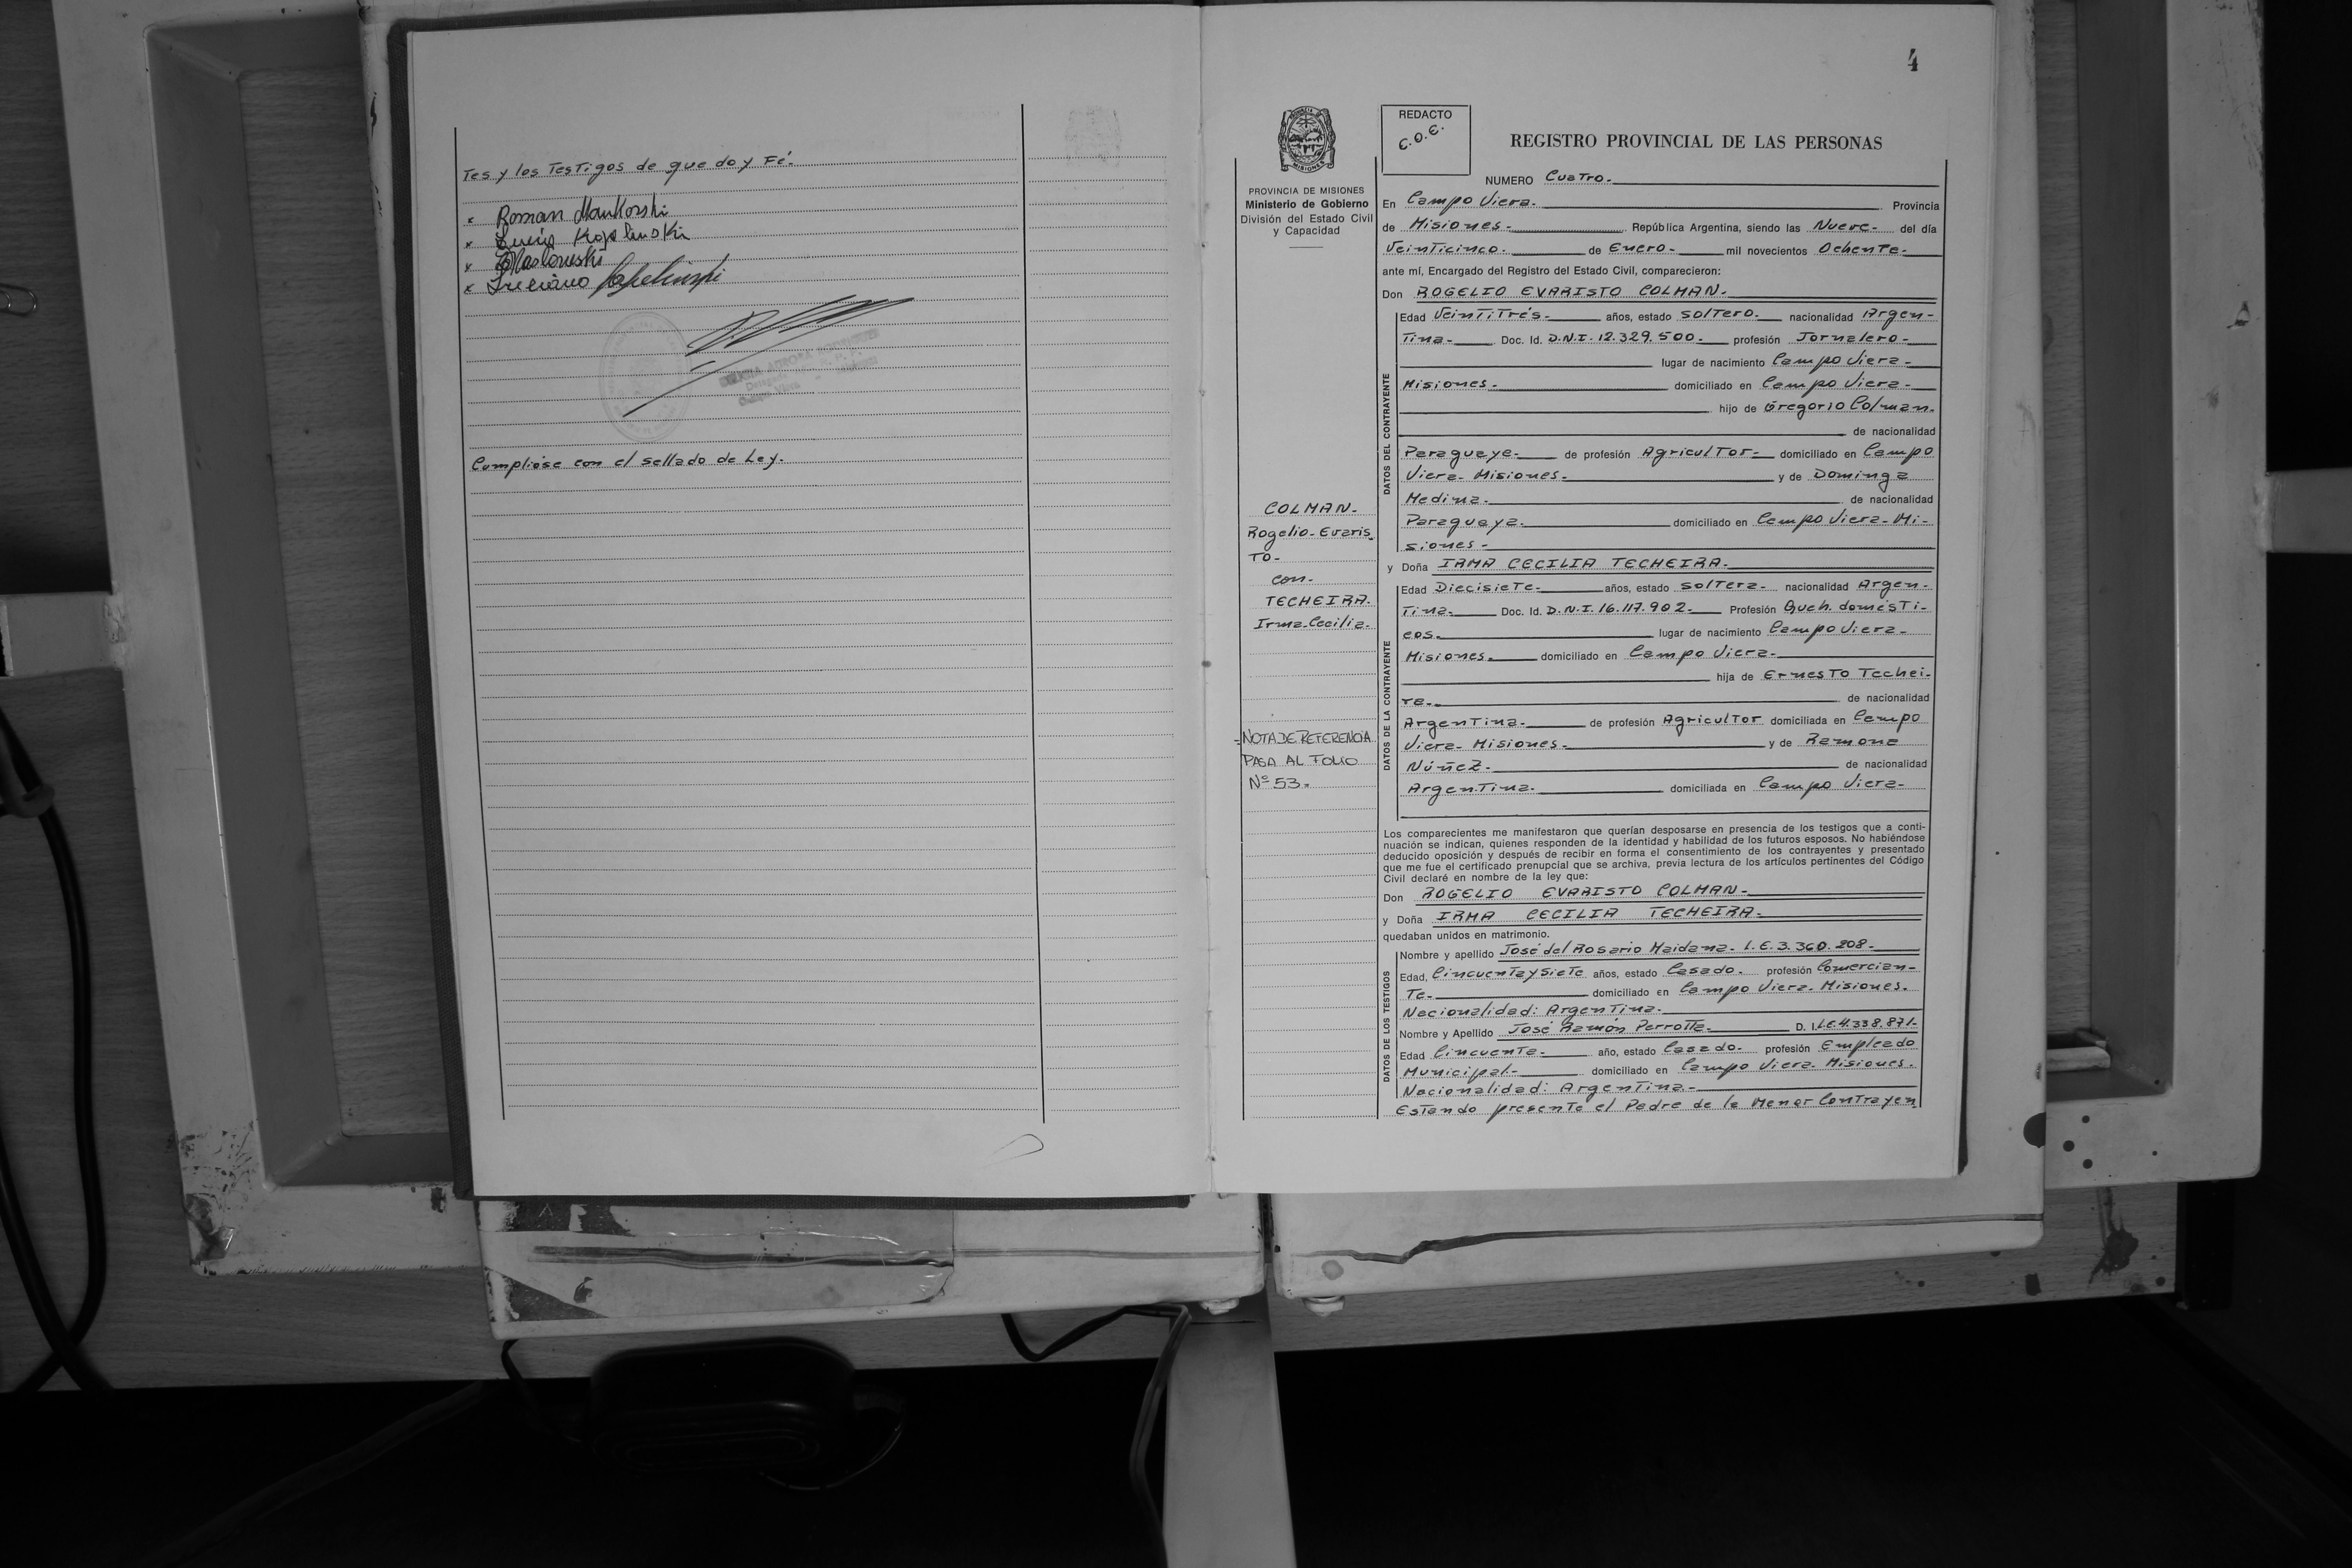 Tes y los Testigos de que doy Fé.
x Roman
x Lucía
x
x Luciano
Cumplióse con el sellado de Ley.
4
REDACTO
C.O.E.
REGISTRO PROVINCIAL DE LAS PERSONAS
NUMERO Cuatro.-
PROVINCIA DE MISIONES
Ministerio de Gobierno
División del Estado Civil
y Capacidad
COLMAN.-
Rogelio-Evaris
TO-
con-
TECHEIRA.
Irma-Cecilia.-
=NOTA DE REFERENCIA
PASA AL FOLIO
Nº 53.=
En Campo Viera.- Provincia
de Misiones.- República Argentina, siendo las Nueve.- del día
Veinticinco.- de Enero.- mil novecientos Ochenta.-
ante mí, Encargado del Registro del Estado Civil, comparecieron:
Don ROGELIO EVARISTO COLMAN.-
DATOS DEL CONTRAYENTE
Edad VeinTiTrés.- años, estado solTero.- nacionalidad Argen-
Tina.- Doc. Id. D.N.I. 12.329.500.- profesión Jornalero.-
lugar de nacimiento Campo Viera.-
Misiones.- domiciliado en Campo Viera.-
hijo de Gregorio Colman.
de nacionalidad
Paraguaya.- de profesión AgriculTor.- domiciliado en Campo
Viera-Misiones.- y de Dominga
Medina.- de nacionalidad
Paraguaya.- domiciliado en Campo Viera-Mi-
siones.-
y Doña IRMA CECILIA TECHEIRA.-
DATOS DE LA CONTRAYENTE
Edad DiecisieTe.- años, estado solTera.- nacionalidad Argen-
Tina.- Doc. Id. D.N.I. 16.117.902.- Profesión Queh. domésTi-
cos.- lugar de nacimiento Campo Viera.-
Misiones.- domiciliado en Campo Viera.-
hija de ErnesTo Techei-
ra.- de nacionalidad
ArgenTina.- de profesión AgriculTor domiciliada en Campo
Viera-Misiones.- y de Ramona
Núñez.- de nacionalidad
ArgenTina.- domiciliada en Campo Viera-
Los comparecientes me manifestaron que querían desposarse en presencia de los testigos que a conti-
nuación se indican, quienes responden de la identidad y habilidad de los futuros esposos. No habiéndose
deducido oposición y después de recibir en forma el consentimiento de los contrayentes y presentado
que me fue el certificado prenupcial que se archiva, previa lectura de los artículos pertinentes del Código
Civil declaré en nombre de la ley que:
Don ROGELIO EVARISTO COLMAN.-
y Doña IRMA CECILIA TECHEIRA.-
quedaban unidos en matrimonio.
DATOS DE LOS TESTIGOS
Nombre y apellido José del Rosario Maidana- L.E. 3.360.208.-
Edad, CincuenTa y SieTe años, estado Casado.- profesión Comercian-
Te.- domiciliado en Campo Viera-Misiones.
Nacionalidad: ArgenTina.-
Nombre y Apellido José Ramón Perrotta.- D. I. L.E. 4.338.871.-
Edad CincuenTa.- año, estado Casado.- profesión Empleado
Municipal.- domiciliado en Campo Viera-Misiones.
Nacionalidad: ArgenTina.-
EsTando presenTe el Padre de la Menor ConTrayen